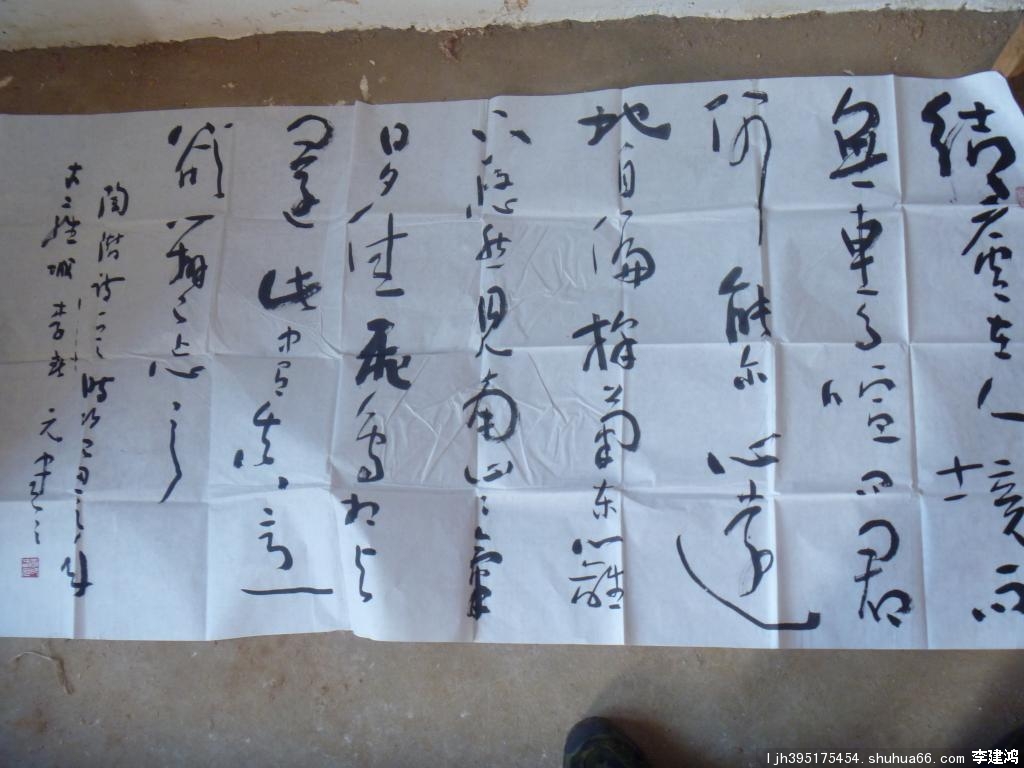 結廬在人境而
無車馬喧問君
何能尔心遠
地自偏採菊東籬
下悠然見南山々氣
日夕佳飛鳥相與
還此中有真意
欲辨已忘言
陶潛詩一首時
城李
ljh395175454.shuhua66.com 李建鸿